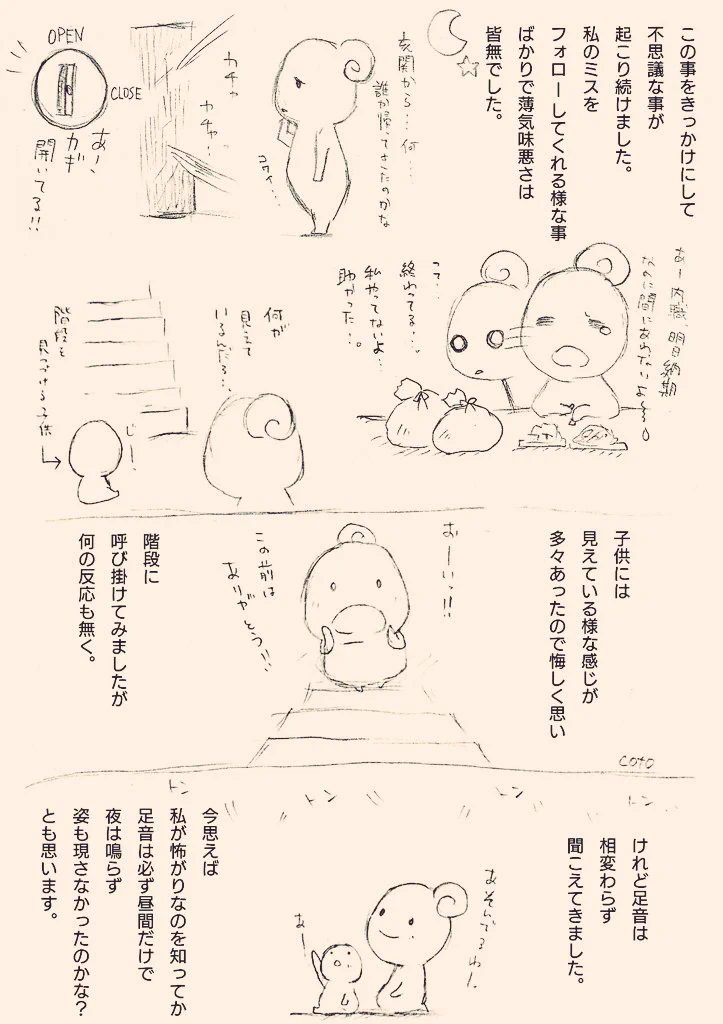 この事をきっかけにして
不思議な事が
起こり続けました。
私のミスを
フォローしてくれる様な事
ばかりで薄気味悪さは
皆無でした。
玄関から…何…
誰か帰ってきたのかな
コワイ…
カチャ
カチャ…
OPEN
CLOSE
あー、
カギ
開いてる!!
あー内職、明日納期
なのに間にあわないよ〜
って…
終わってる…。
私やってないよ…
助かった…。
何が
見えて
いるんだろ…
じー…
階段を
見つづける子供
子供には
見えている様な感じが
多々あったので悔しく思い
おーいっ!!
この前は
ありがとう!!
階段に
呼び掛けてみましたが
何の反応も無く。
coto
トン
トン
トン
トン
けれど足音は
相変わらず
聞こえてきました。
あそんでるわ。
あー
今思えば
私が怖がりなのを知ってか
足音は必ず昼間だけで
夜は鳴らず
姿も現さなかったのかな?
とも思います。